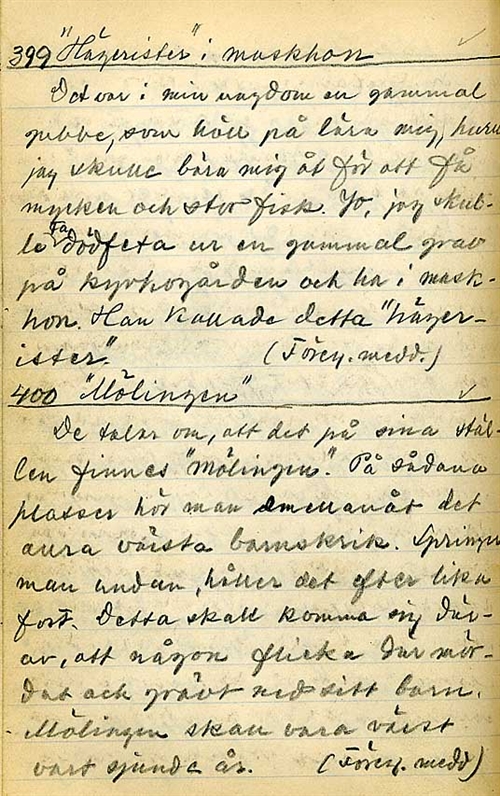 399 "Hägerister" i maskhon
Det var i min ungdom en gammal
gubbe, som höll på lära mig, huru
jag skulle bära mig åt för att få
mycken och stor fisk. Jo, jag skul-
le få dödfeta ur en gammal grav
på kyrkogården och ha i mask-
hon. Han kallade detta "häger-
ister".     (Föreg. medd.)
400 "Mölingen"
De talar om, att det på sina stäl-
len finnes "mölingen". På sådana
platser hör man emellanåt det
allra värsta barnskrik. Springer
man undan, håller det efter lika
fort. Detta skall komma sig där-
av, att någon flicka där mör-
dat och grävt ned sitt barn.
Mölingen skall vara värst
vart sjunde år.     (Föreg. medd)